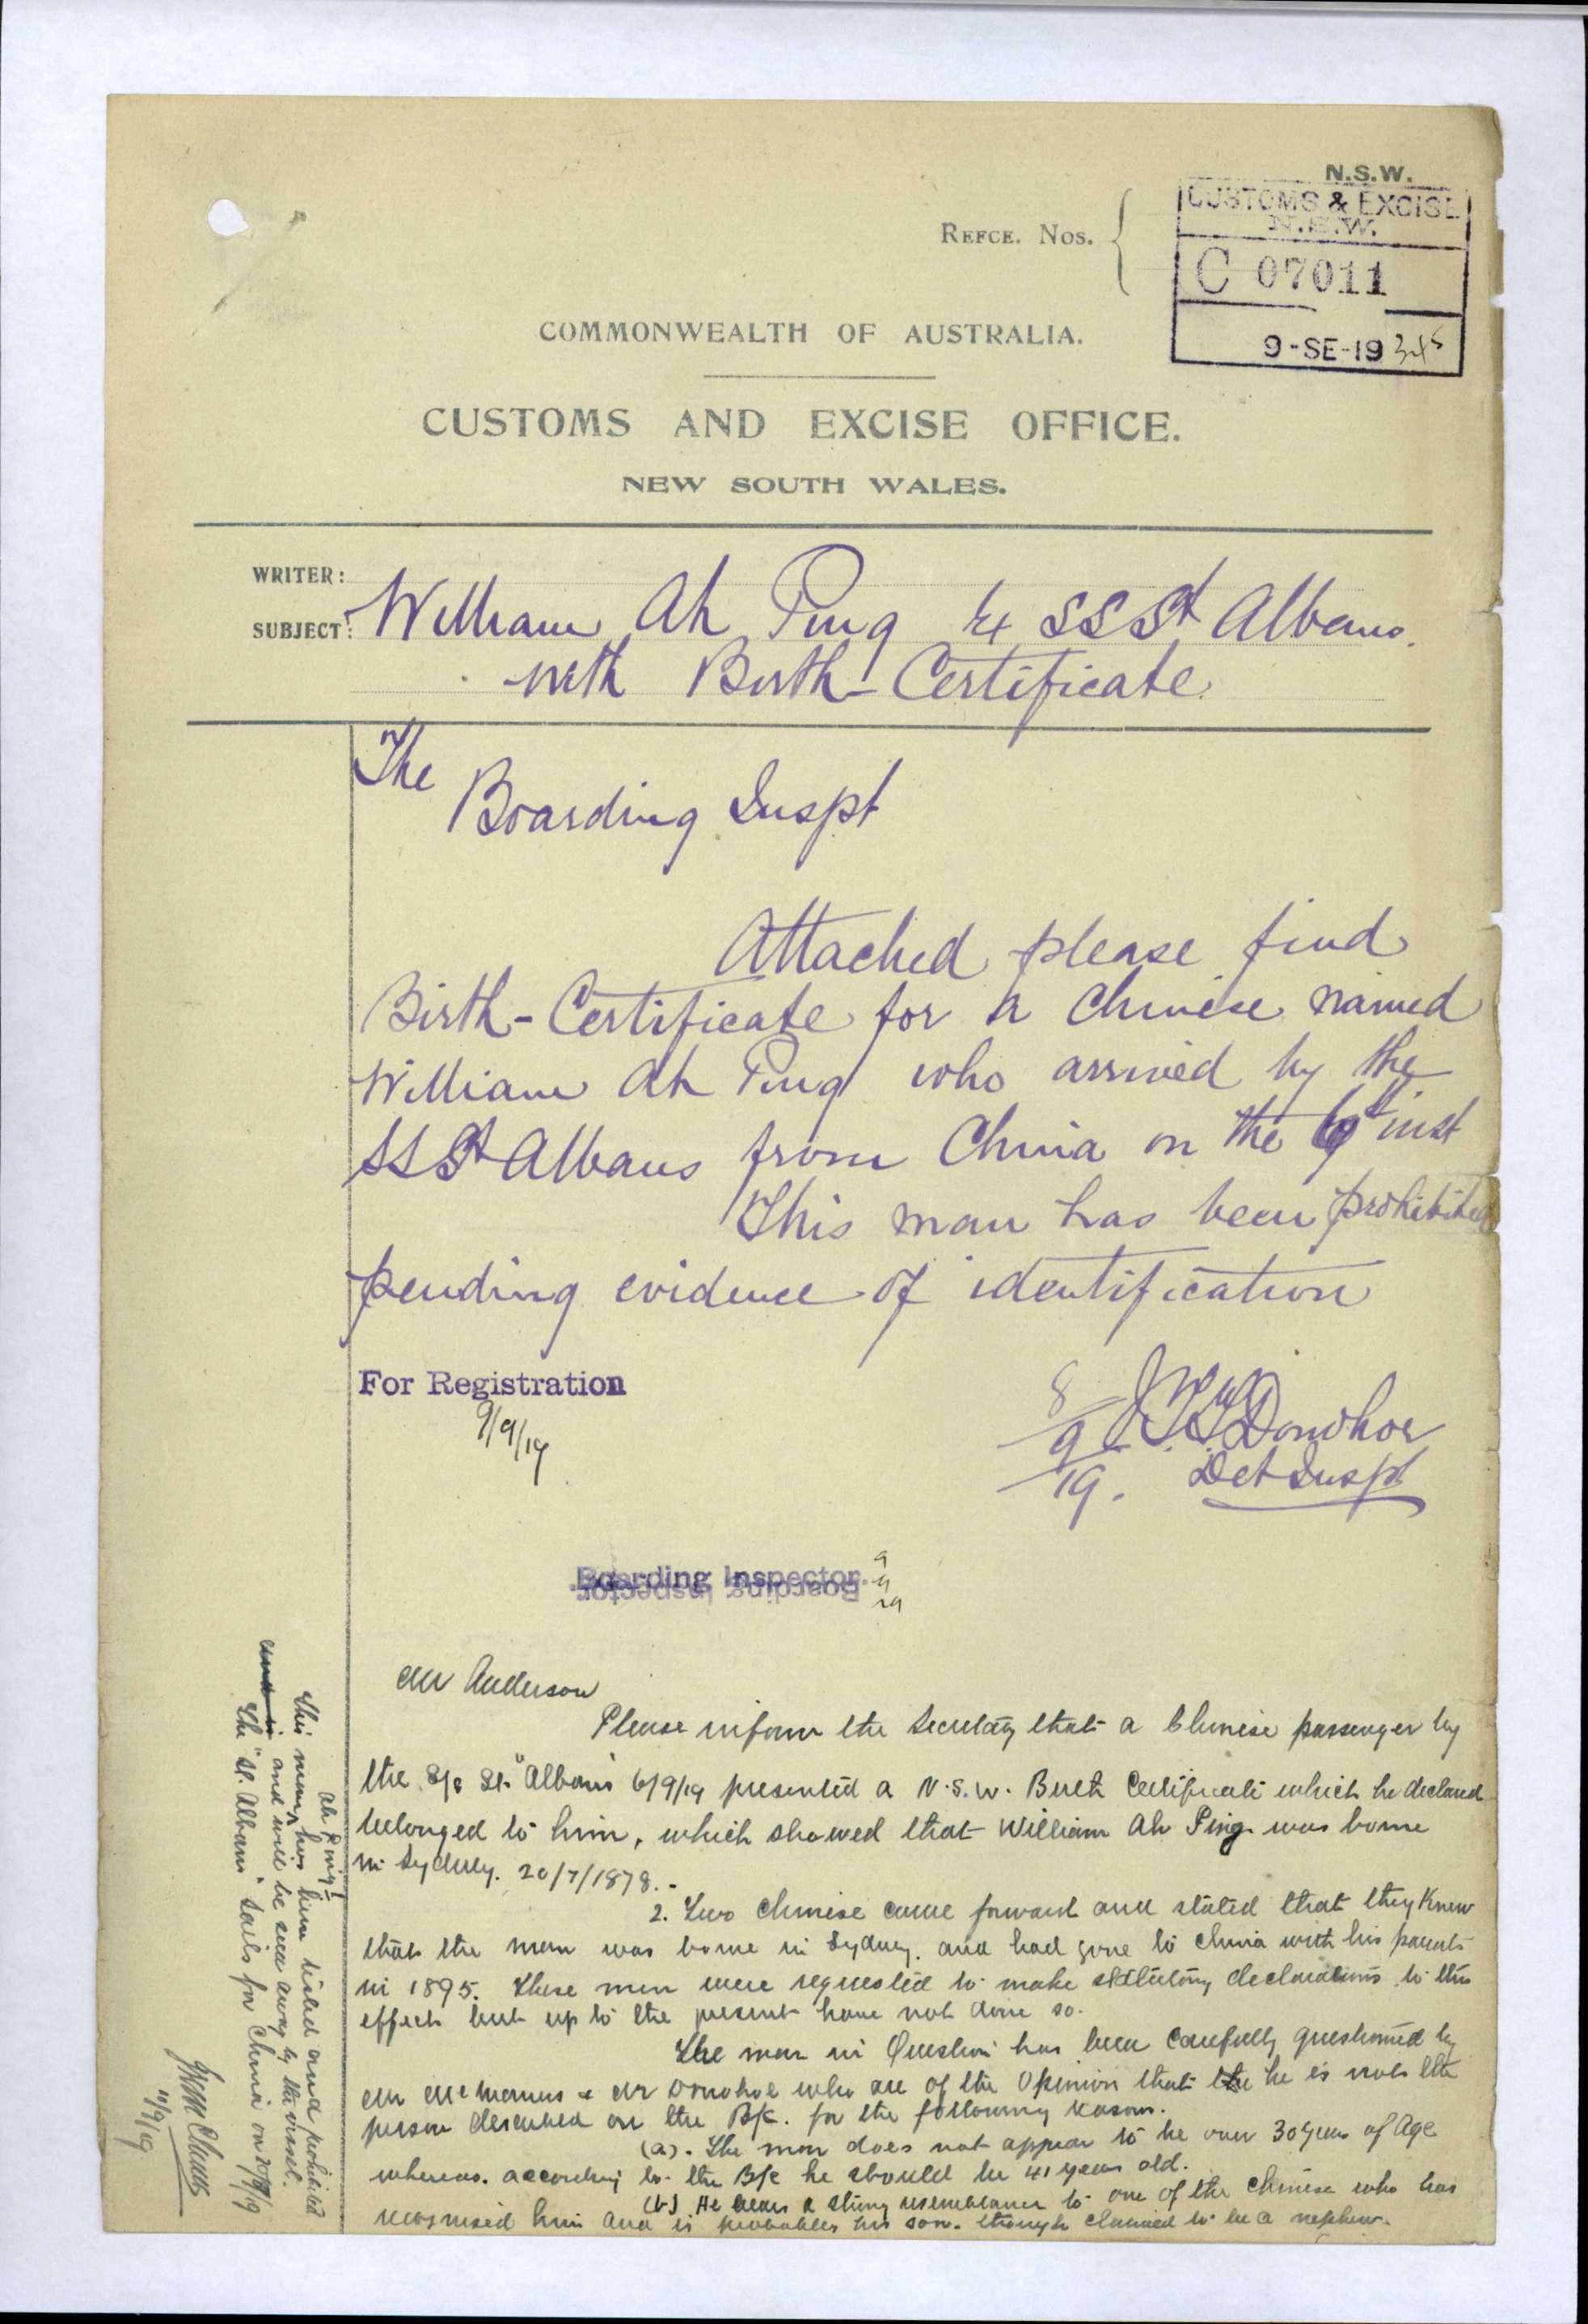 N.S.W.
CUSTOMS & EXCISE
N.S.W.
REFCE. NOS.
C 07011
9-SE-19
COMMONWEALTH OF AUSTRALIA.
CUSTOMS AND EXCISE OFFICE.
NEW SOUTH WALES.
WRITER:
SUBJECT: William Ah Ping ex SS St Albans.
with Birth-Certificate
The
Boarding Inspt
Attached please find
Birth-Certificate for a Chinese named
William Ah Ping who arrived by the
SS St Albans from China on the 6th inst
This man has been prohibited
pending evidence of identification
For Registration
9/9/19
8/9/19. Donohoe
Det Inspt
Boarding Inspector.
9/9/19
Mr Anderson
Please inform the Secretary that a Chinese passenger by
the S/s St. "Albans 6/9/19 presented a N.S.W. Birth Certificate which he declared
belonged to him, which showed that William Ah Ping was borne
in Sydney. 20/7/1878.-
2. Two Chinese came forward and stated that they knew
that the man was borne in Sydney. and had gone to China with his parents
in 1895. These men were requested to make statutory declarations to this
effect but up to the present have not done so.
The man in Question has been carefully questioned by
Mr McManus & Mr Donohoe who are of the opinion that he is not the
person described on the B/c. for the following reasons.
(a). The man does not appear to be over 30 years of Age
whereas. according to the B/c he should be 41 years old.
(b) He bears a strong resemblance to one of the Chinese who has
recognised him and is probably his son. though claimed to be a nephew.
Ah Ping
This man has been tested and prohibited
and will be sent away by this vessel.
The "St. Albans" sails for China on 20/9/19
11/9/19